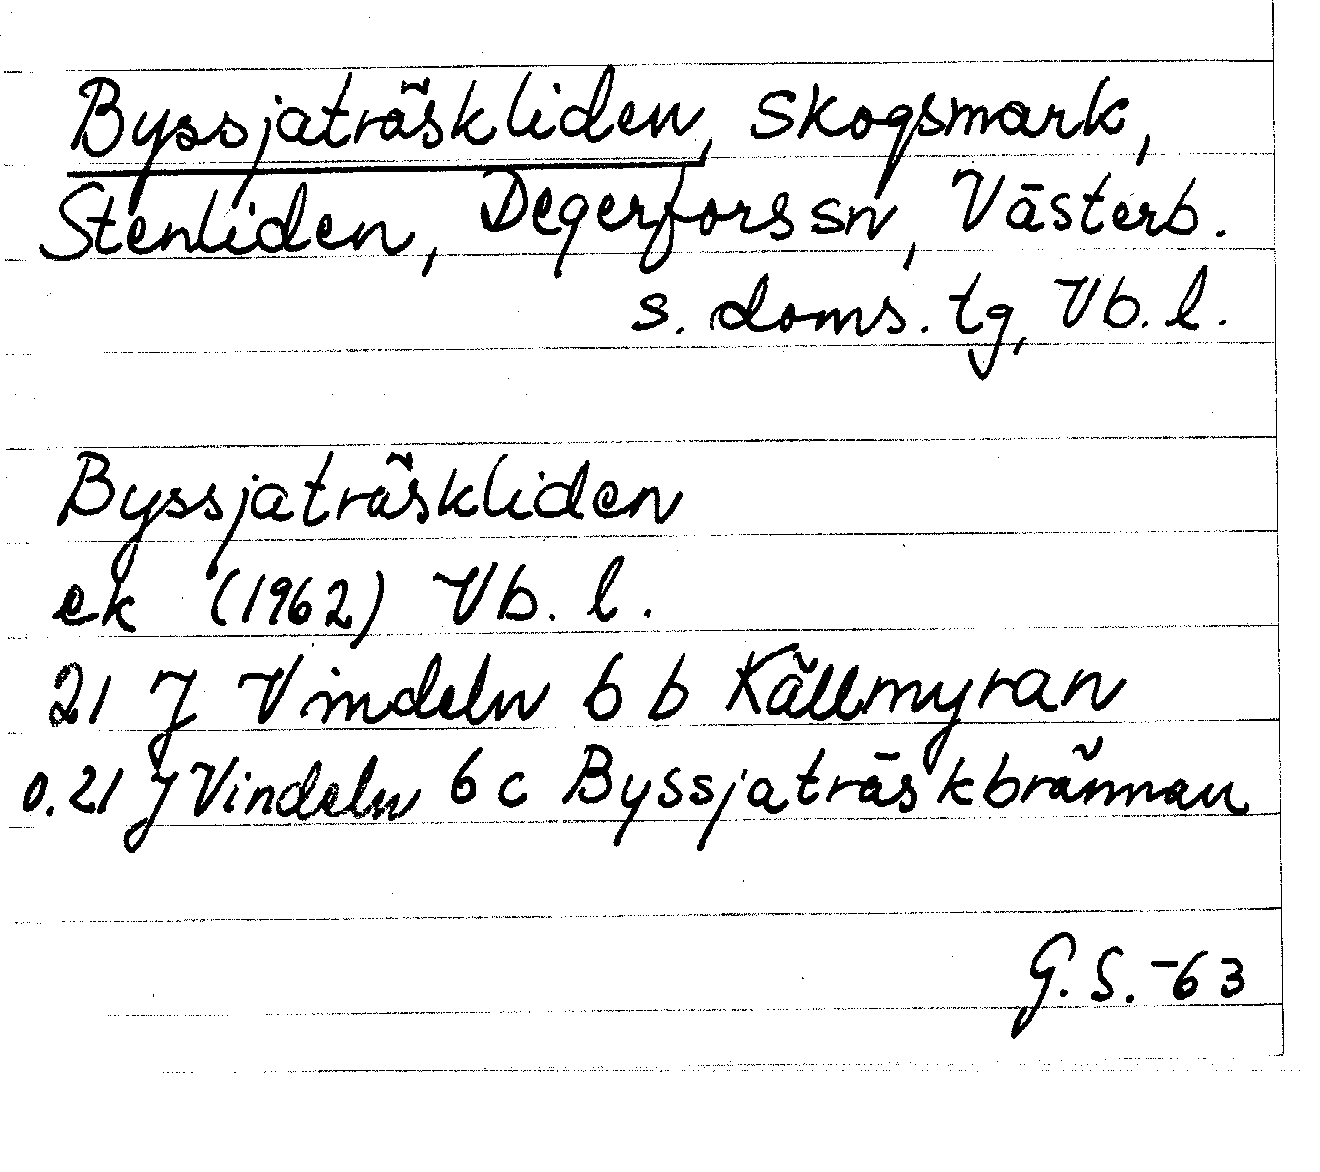 Byssjaträskliden, skogsmark,
Stenliden, Degerfors sn, Västerb.
s. doms. tg, Vb. l.
Byssjaträskliden
ek (1962) Vb. l.
21 J Vindeln 6 b Källmyran
o. 21 J Vindeln 6 c Byssjaträskbrännan
G. S. -63